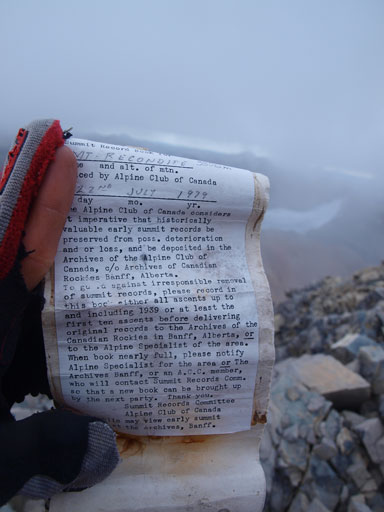 Summit Record
MT. RECONDITE
and alt. of mtn.
ced by Alpine Club of Canada
2ND JULY 1979
day mo. yr.
e Alpine Club of Canada considers
t imperative that historically
valuable early summit records be
preserved from poss. deterioration
and/or loss, and be deposited in the
Archives of the Alpine Club of
Canada, c/o Archives of Canadian
Rockies Banff, Alberta.
To guard against irresponsible removal
of summit records, please record in
this book either all ascents up to
and including 1939 or at least the
first ten ascents before delivering
original records to the Archives of the
Canadian Rockies in Banff, Alberta, or
to the Alpine Specialist of the area.
When book nearly full, please notify
Alpine Specialist for the area or The
Archives Banff, or an A.C.C. member,
who will contact Summit Records Comm.
so that a new book can be brought up
by the next party. Thank you.
Summit Records Committee
Alpine Club of Canada
may view early summit
the archives, Banff.